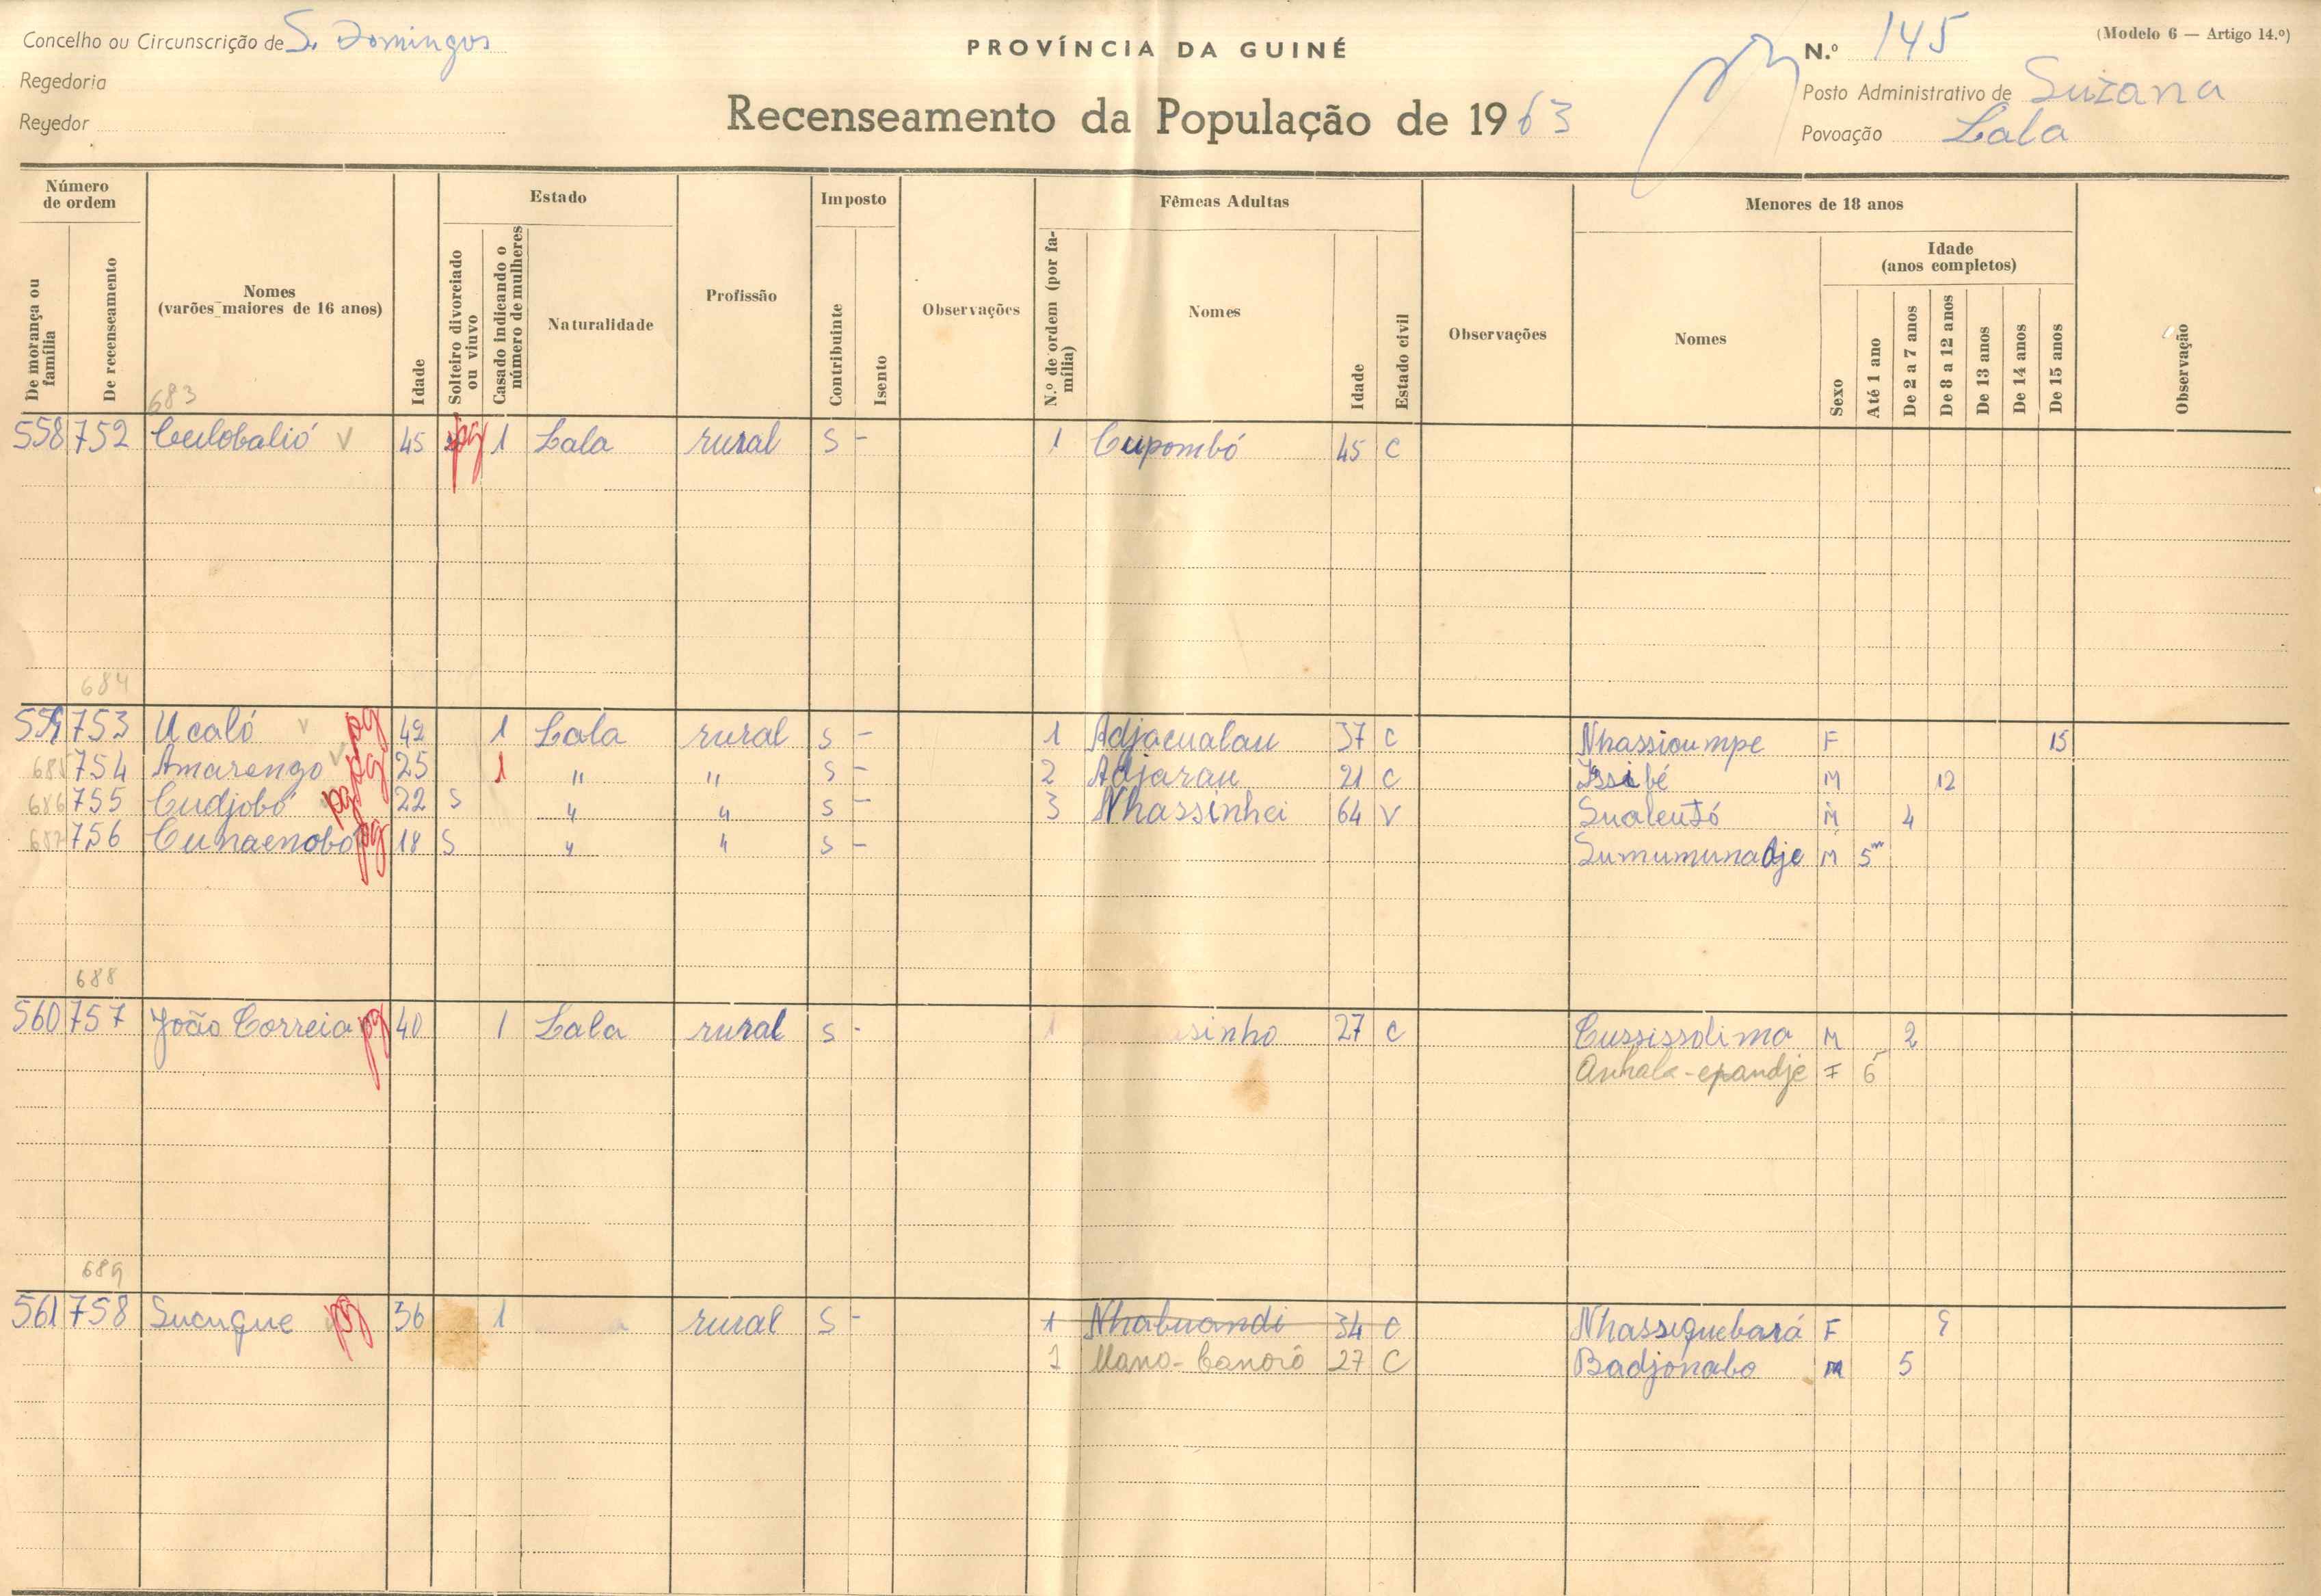 Concelho ou Circunscrição de S. Domingos
PROVÍNCIA DA GUINÉ
N.º 145
(Modelo 6 — Artigo 14.º)
Regedoria
Posto Administrativo de Suzana
Regedor
Recenseamento da População de 1963
Povoação Lala
Número de ordem
Estado
Imposto
Fêmeas Adultas
Menores de 18 anos
De morança ou família
De recenseamento
Nomes (varões maiores de 16 anos)
Idade
Solteiro divorciado ou viuvo
Casado indicando o número de mulheres
Naturalidade
Profissão
Contribuinte
Isento
Observações
N.º de ordem (por família)
Nomes
Idade
Estado civil
Observações
Nomes
Sexo
Idade (anos completos)
Até 1 ano
De 2 a 7 anos
De 8 a 12 anos
De 13 anos
De 14 anos
De 15 anos
Observação
683
558 752 Culobalió V 45 pg 1 Lala rural S - 1 Cupombó 45 C
684
559 753 Ucaló V pg 42 1 Lala rural S - 1 Adjacualau 37 C Nhassioumpe F 15
685 754 Amarengo V pg 25 1 " " S - 2 Adjarau 21 C Issibé M 12
686 755 Cudjobó pg 22 S " " S - 3 Nhassinhei 64 V Sualeutó M 4
687 756 Cunaenobó pg 18 S " " S - Sumumunadje M 5m
688
560 757 João Correia pg 40 1 Lala rural S - 1 sinho 27 C Cussissolima M 2
Anhala-epandje F 6
689
561 758 Sucugue pg 36 1 rural S - 1 Nhabuandi 34 C Nhassiquebará F 9
1 Mano-Canoró 27 C Badjonabo M 5